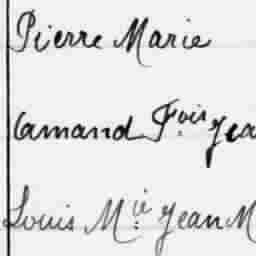 Pierre Marie
Amand F.ois Jea
Louis M.ie Jean M